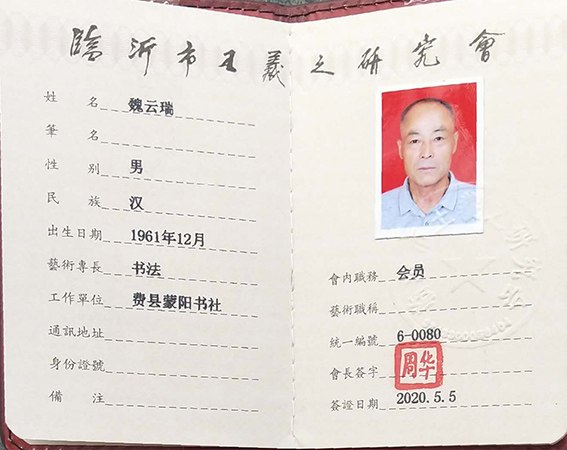 臨沂市王羲之研究會
姓名 魏云瑞
筆名
性別 男
民族 汉
出生日期 1961年12月
藝術專長 书法
工作單位 费县蒙阳书社
通訊地址
身份證號
備注
會内職務 会员
藝術職稱
統一編號 6-0080
會長簽字 周华
簽證日期 2020.5.5